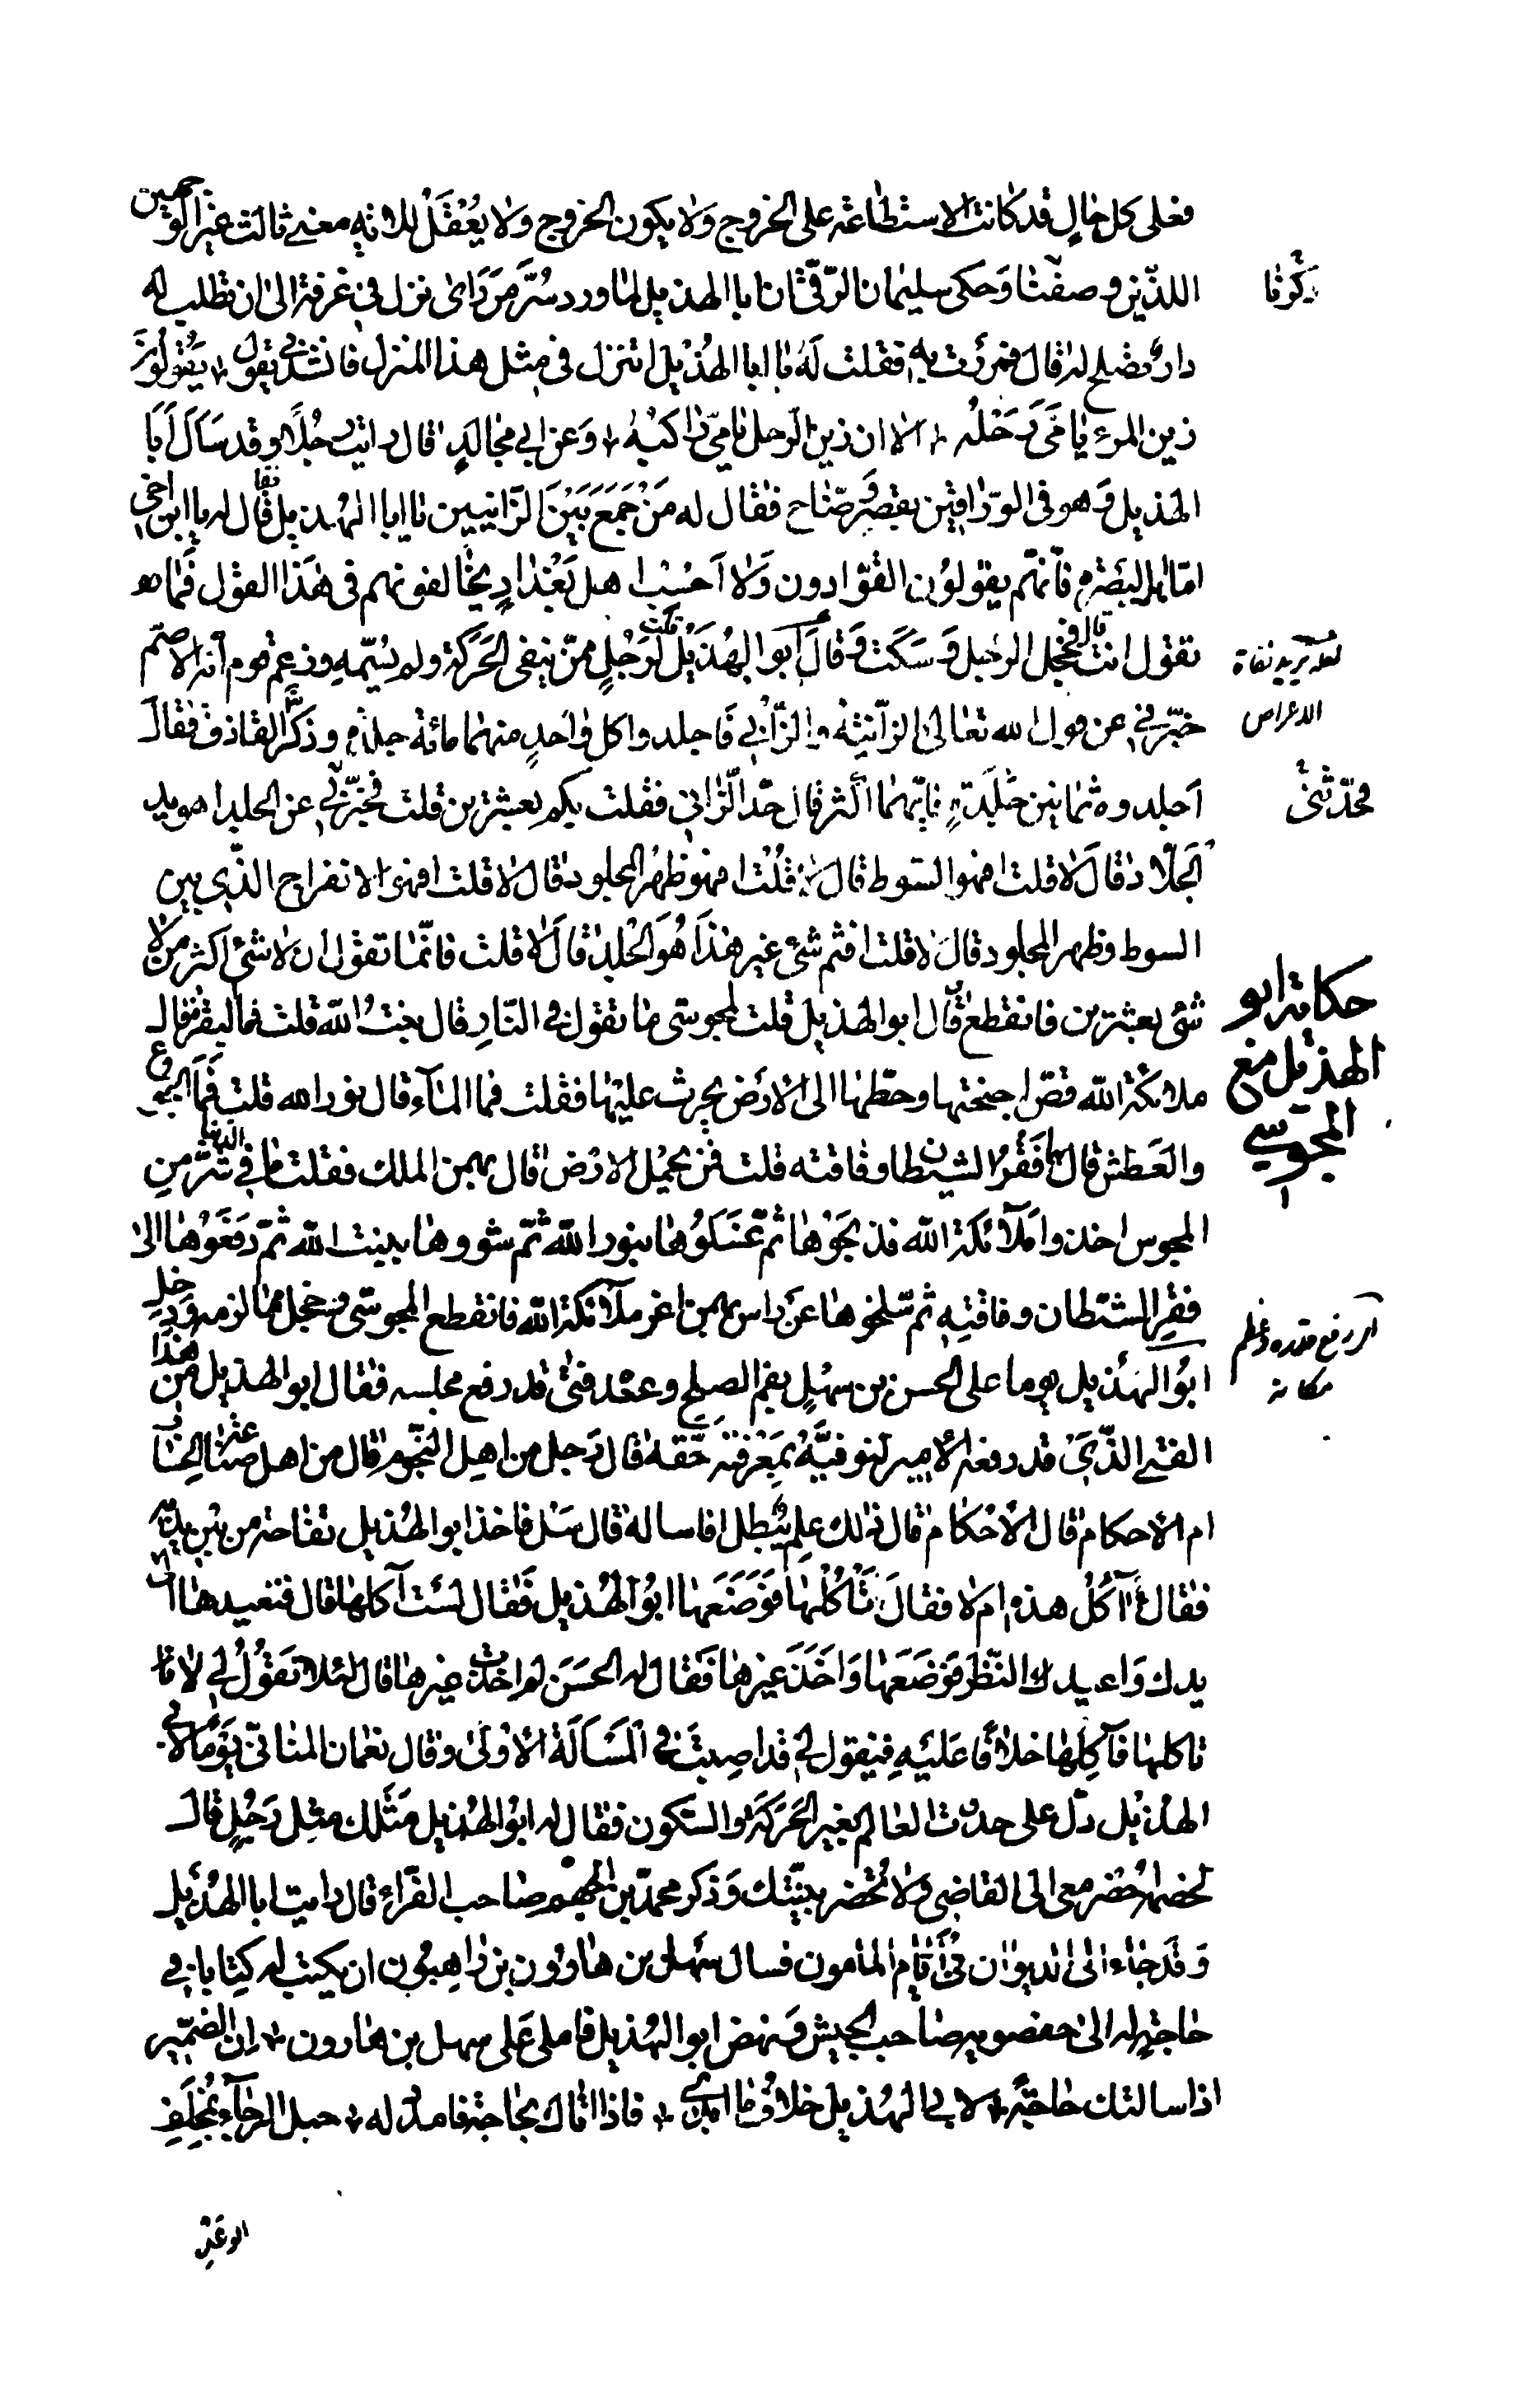 فعلى كل حال قد كانت الاستطاعة على الخروج ولا يكون الخروج ولا يعقل للاثه معنى ثالث غير الوجهين
اللذين وصفنا وحكى سليمان الرقي ان ابا الهذيل لما ورد سر من راى نزل في غرفة الى ان تطلب له
دار تصلح له قال فمررت به فقلت له يا ابا الهذيل اتنزل في مثل هذا المنزل فانشدني يقول يقولون
زين المرء يا مي رحله الا ان زين الرحل يا مي راكبه وعن ابي مجالد قال رايت رجلا وقد سال ابا
الهذيل وهو في الوراقين بقصر وضاح فقال له من جمع بين الزانيين يا ابا الهذيل فقال له يا ابن اخي
اما اهل البصرة فانهم يقولون القوادون ولا احسب اهل بغداد يخالفونهم في هذا القول فما
تقول انت قال فخجل الرجل وسكت وقال ابو الهذيل قلت لرجل ممن ينفي الحركة ولم يسمه وزعم قوم انه الاصم
خبرني عن قول الله تعالى الزانية والزاني فاجلدوا كل واحد منهما مائة جلدة وذكر القاذف فقال
اجلدوه ثمانين جلدة فايهما اكثر قال حد الزاني فقلت بكم بعشرين قلت فخبرني عن الجلد اهو يد
الجلاد قال لا قلت افهو السوط قال لا قلت افهو ظهر المجلود قال لا قلت افهو الانفراج الذي بين
السوط وظهر المجلود قال لا قلت افثم شئ غير هذا هو الجلد قال لا قلت فانما تقول ان لا شئ اكثر من لا
شئ بعشرين فانقطع وقال ابو الهذيل قلت لمجوسي ما تقول في النار قال بنت الله قلت فما البقر قال
ملائكة الله قص اجنحتها وحطها الى الارض يحرث عليها فقلت فما الماء قال نور الله قلت فما الجوع
والعطش قال فقر الشيطان وفاقته قلت فمن يحمل الارض قال بهمن الملك فقلت فما في الدنيا شر من
المجوس اخذوا ملائكة الله فذبحوها ثم غسلوها بنور الله ثم شووها ببنت الله ثم دفعوها الى
فقر الشيطان وفاقته ثم سلحوها على راس بهمن اعز ملائكة الله فانقطع المجوسي وخجل مما لزمه ودخل
ابو الهذيل يوما على الحسن بن سهل بفم الصلح وعنده فتى قد رفع مجلسه فقال ابو الهذيل من هذا
الفتى الذي قد رفعه الامير لنوفيه بمعرفته حقه قال رجل من اهل النجوم قال من اهل صناعة الحساب
ام الاحكام قال الاحكام قال ذلك علم يبطل افاساله قال سل فاخذ ابو الهذيل تفاحة من بين يديه
فقال آكل هذه ام لا فقال تاكلها فوضعها ابو الهذيل فقال لست آكلها قال فتعيدها الى
يدك واعيد النظر فوضعها واخذ غيرها فقال له الحسن لم اخذت غيرها قال لئلا تقول لي لا
تاكلها فآكلها خلافا عليه فيقول لي قد اصبت في المسالة الاولى وقال نعمان المناني يوما لابي
الهذيل دل على حدث العالم بغير الحركة والسكون فقال له ابو الهذيل مثلك مثل رجل قال
لخصمه احضر معي الى القاضي ولا تحضر بينتك وذكر محمد بن الجهم صاحب الفراء قال رايت ابا الهذيل
وقد جاء الى الديوان في ايام المامون فسال سهل بن هارون بن راهبون ان يكتب له كتابا في
حاجة له الى صاحب الجيش ونهض ابو الهذيل فاملى على سهل بن هارون ان الضمير
اذا سالتك حاجة لابي الهذيل خلاف ما ابدي فاذا اتاك بحاجة فامدد له حبل الرجاء بمخلف
ذكرنا
لعله يريد نفاة
الاعراض
فحدثني
حكاية ابو
الهذيل مع
المجوسي
اي رفع قدره وعظم
مكانه
الوعد